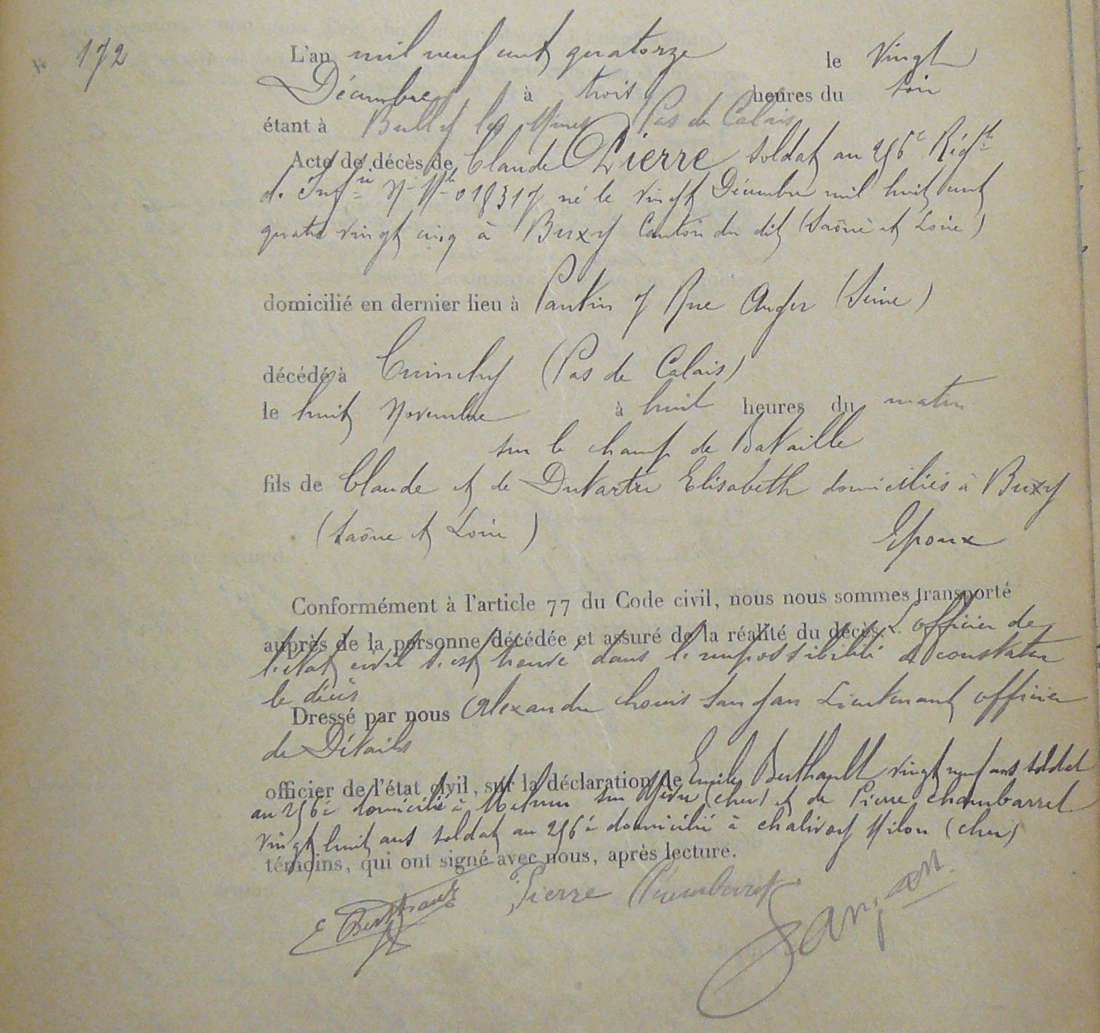 172
L'an mil neuf cent quatorze le vingt
Décembre à trois heures du soir
étant à Bully les Mines Pas de Calais
Acte de décès de Claude Pierre soldat au 256e Régt
d'Infie né le vingt Décembre mil huit cent
quatre vingt cinq à Buxy Canton du dit (Saône et Loire)
domicilié en dernier lieu à Pantin 7 Rue Auger (Seine)
décédé à Cuinchy (Pas de Calais)
le huit Novembre à huit heures du matin
sur le champ de Bataille
fils de Claude et de Dutartre Elisabeth domiciliés à Buxy
(Saône et Loire) Epoux
Conformément à l'article 77 du Code civil, nous nous sommes transporté
auprès de la personne décédée et assuré de la réalité du décès L'officier de
l'état civil s'est trouvé dans l'impossibilité de constater
le décès
Dressé par nous Alexandre Louis Sanjan Lieutenant officier
de Détails
officier de l'état civil, sur la déclaration de Emile Berthault vingt neuf ans soldat
au 256e domicilié à Mehun sur Yèvre (cher) et de Pierre Chambarret
vingt huit ans soldat au 256e domicilié à Chalivoy Milon (cher)
témoins, qui ont signé avec nous, après lecture.
E Berthault Pierre Chambarret